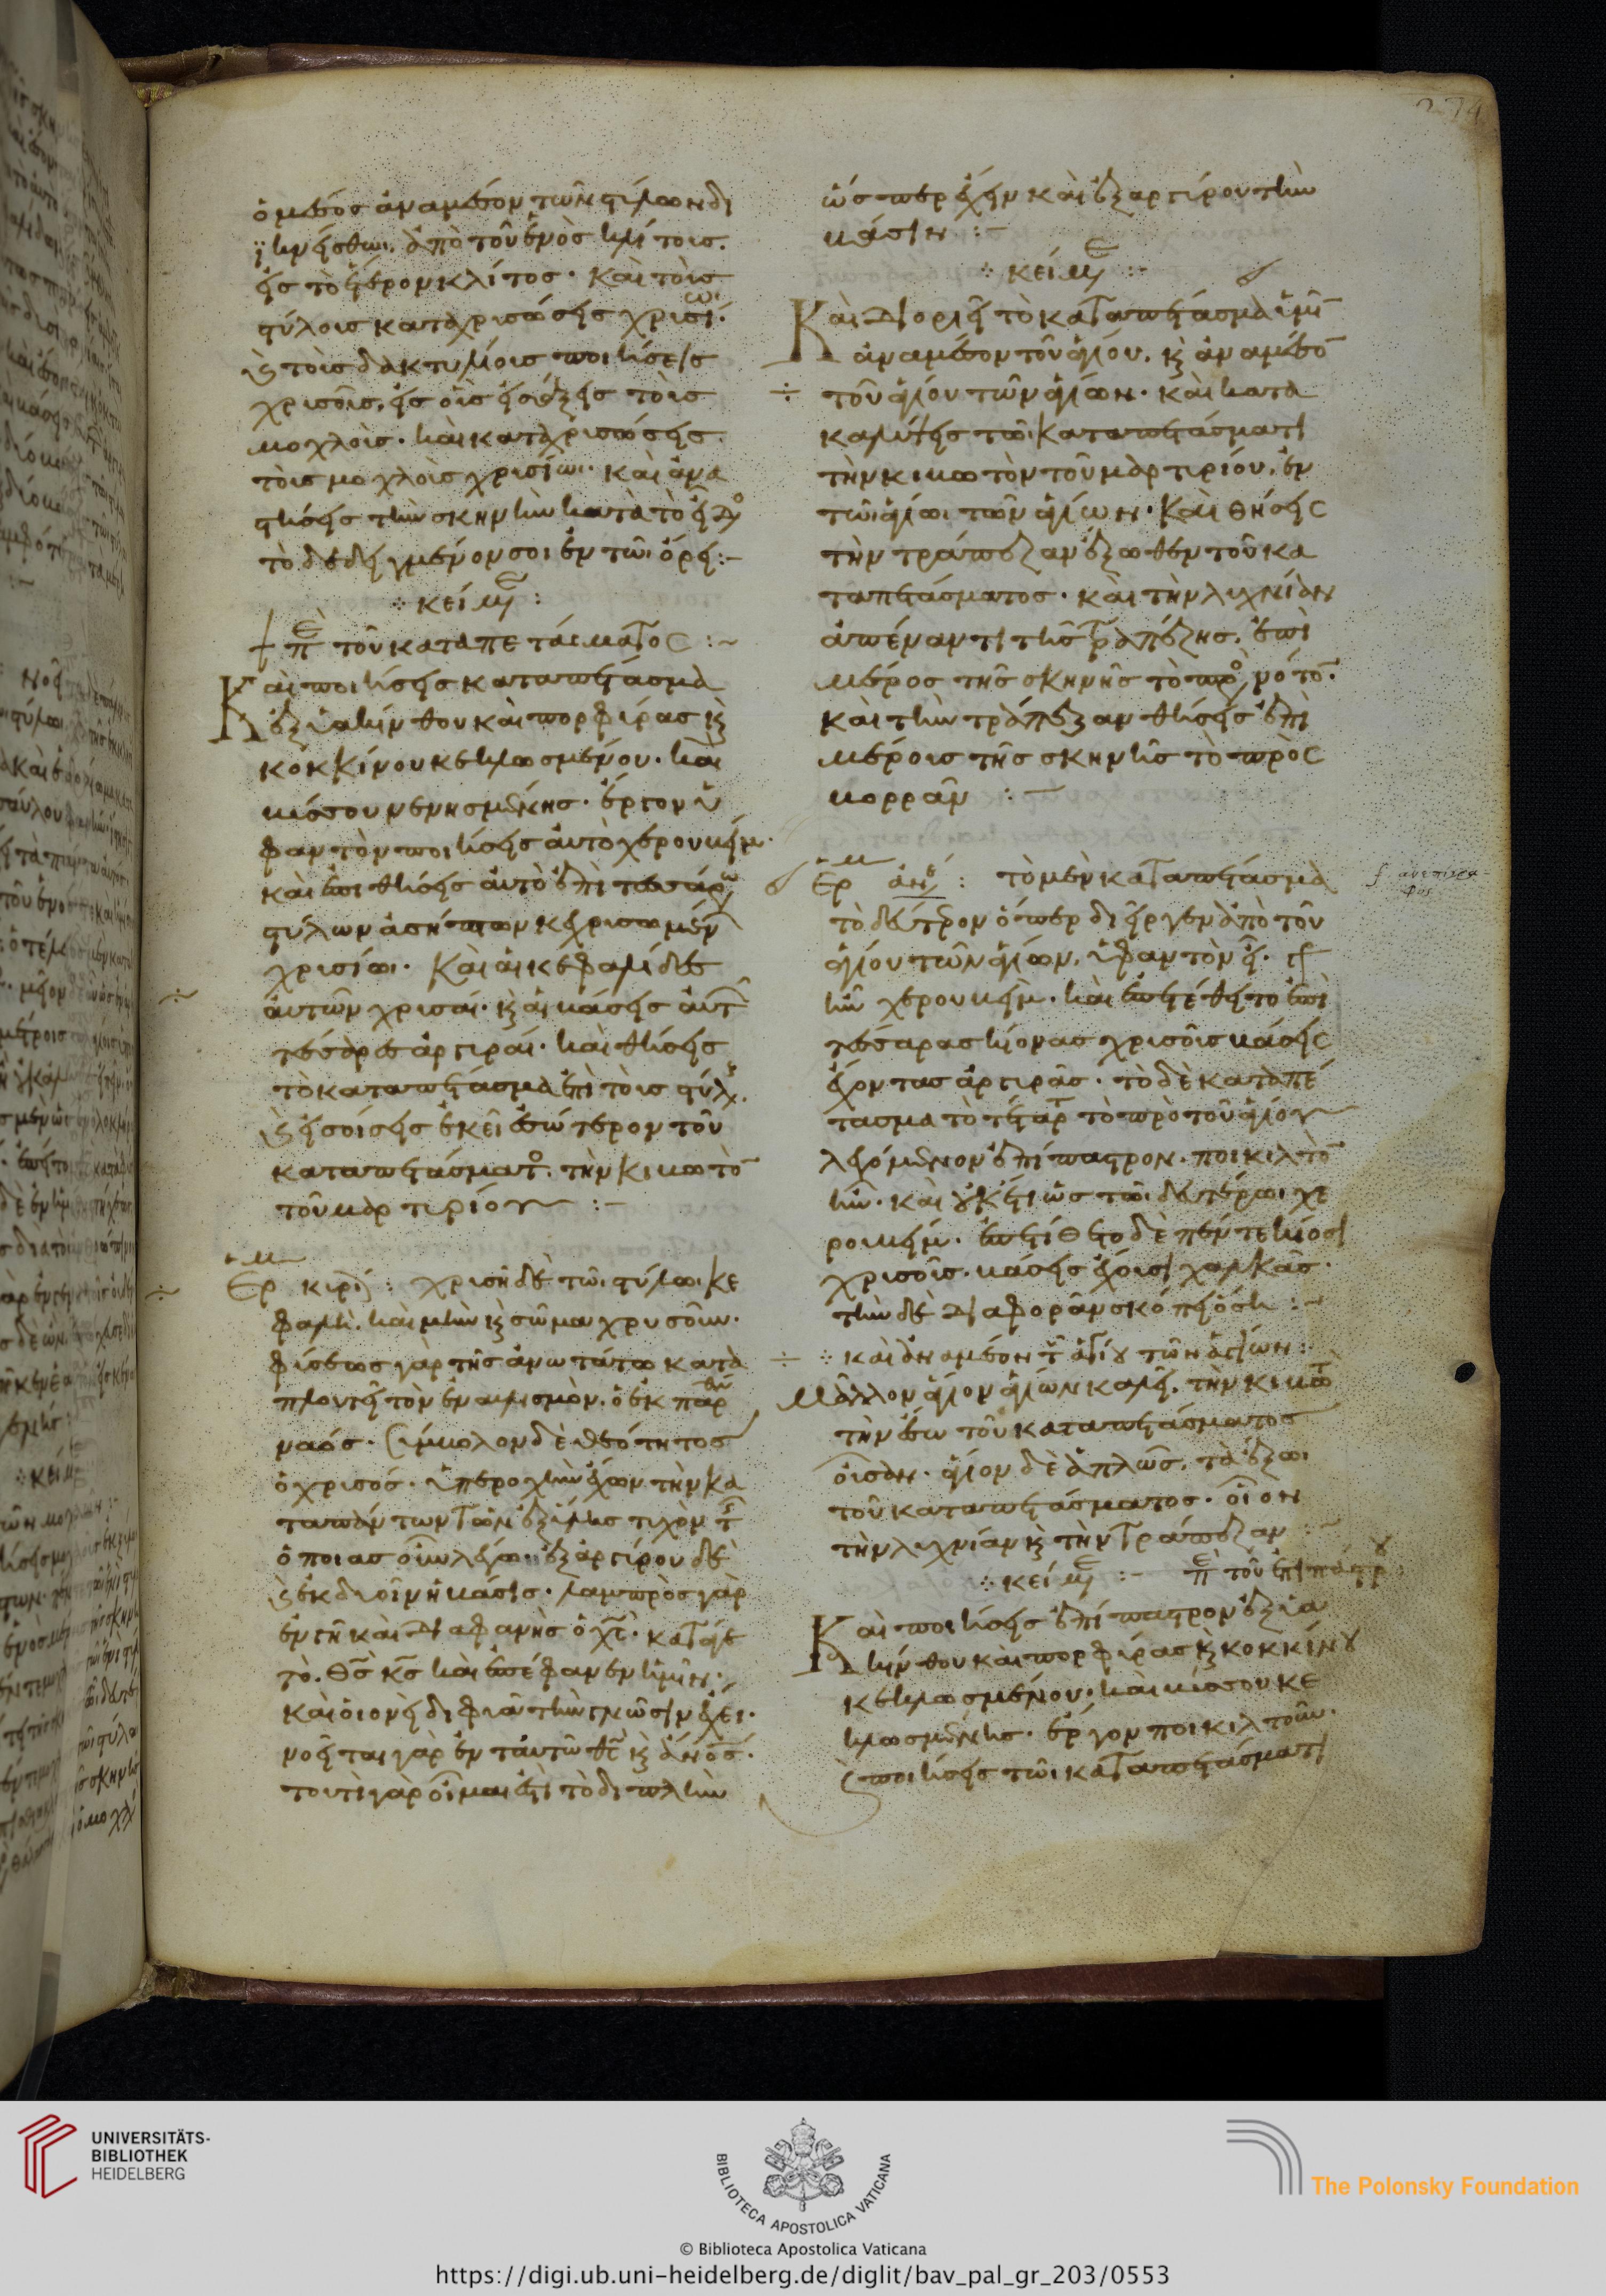 ὁ μέσος ἀναμέσον τῶν στύλων δι
ϊκνείσθω. ἀπὸ τοῦ ἑνὸς κλίτους.
εἰς τὸ ἕτερον κλίτος. καὶ τοὺς
στύλους καταχρυσώσεις χρυσίωι.
τοὺς δακτυλίους ποιήσεις
χρυσοῦς, εἰς οὓς εἰσάξεις τοὺς
μοχλοὺς. καὶ καταχρυσώσεις
τοὺς μοχλοὺς χρυσίωι. καὶ ἀνα
στήσεις τὴν σκηνὴν κατὰ τὸ εἶδο
τὸ δεδειγμένον σοι ἐν τῶι ὄρει:–
κεί μ:
π τοῦ καταπετάσματος :~
Καὶ ποιήσεις καταπέτασμα
ἐξ ὑακίνθου καὶ πορφύρας κ
κοκκίνου κεκλωσμένου. καὶ
βύσσου νενησμένης. ἔργον ὑ
φαντὸν ποιήσεις αὐτὸ χερουβείμ.
καὶ ἐπιθήσεις αὐτὸ ἐπὶ τεσσάρω
στύλων ἀσήπτων κεχρυσωμέν
χρυσίωι. Καὶ αἱ κεφαλίδες
αὐτῶν χρυσαῖ. κ αἱ βάσεις αὐτ
τέσσαρες ἀργυραῖ. καὶ θήσεις
τὸ καταπέτασμα ἐπὶ τοὺς στύλ.
εἰσοίσεις ἐκεῖ ἐσώτερον τοῦ
καταπετάσματο. τὴν κιβωτὸ
τοῦ μαρτυρίου :–
Ερμ κυρί: χρυσῆ δὲ τῶι στύλωι κε
φαλὴ. καὶ μὴν κ σῶμα χρυσοῦν.
φύσεως γὰρ τῆς ἀνωτάτω κατα
πλουτεῖ τὸν ἐναυλισμὸν. ὁ ἐκ παρθ
ναός. σύμβολον δὲ θεότητος
ὁ χρυσός. ὑπεροχὴν ἔχων τὴν κα
ταπάντων τῶν ἐξ ὕλης τυχὸν τ
ὁποιασοῦν λέγω. ἐξ ἀργύρου δὲ
ἐκ δυοῖν ἡ βάσις. λαμπρὸς γὰρ
ἐν γῆ καὶ διαφανὴς ὁ χς. κατὰ γε
τὸ. θς κς καὶ ἐπέφανεν ἡμῖν.
καὶ οἱονεὶ διφυᾶ τὴν γνῶσιν ἔχει.
νοεῖται γὰρ ἐν ταυτῶ θς κ ανος.
τουτὶ γὰρ οἶμαί ἐστι τὸ διπλῆν
ὥσπερ ἔχειν καὶ ἐξ ἀργύρου τὴν
βάσιν :–
κεί μ :–
Καὶ διοριεῖ τὸ καταπέτασμα ὑμῖ
ἀναμέσον τοῦ ἁγίου. κ ἀναμέσο
τοῦ ἁγίου τῶν ἁγίων. καὶ κατα
καλύψεις τῶι καταπετάσματι
τὴν κιβωτὸν τοῦ μαρτυρίου. ἐν
τῶι ἁγίωι τῶν ἁγίων. Καὶ θήσεις
τὴν τράπεζαν ἔξωθεν τοῦ κα
ταπετάσματος. καὶ τὴν λυχνίαν
ἀπέναντι τῆς τραπέζης. ἐπὶ
μέρος τῆς σκηνῆς τὸ προ νότο.
καὶ τὴν τράπεζαν θήσεις ἐπὶ
μέρους τῆς σκηνῆς τὸ πρὸς
βορρᾶν :–
Ερμ αν: τὸ μὲν καταπέτασμα
τὸ δεύτερον ὅπερ διεῖργεν ἀπὸ τοῦ
ἁγίου τῶν ἁγίων. ὑφαντὸν
ἦν χερουβεὶμ. καὶ ἐπετέθειτο ἐπὶ
τέσσαρας κίονας χρυσοῦς βάσεις
ἔχοντας ἀργυρᾶς. τὸ δὲ καταπέ
τασμα τὸ τέταρτ τὸ πρὸ τοῦ ἁγίου
λεγόμενον ἐπίσπαστρον. ποικιλτὸ
ἦν. καὶ οὐκέτι ὡς τῶι δευτέρωι χε
ρουβείμ. ἐπετίθετο δὲ πέντε κίοσι
χρυσοῖς. βάσεις ἔχουσι χαλκᾶς.
τὴν δὲ διαφορᾶν σκόπει ὅση :–
καὶ ἀναμέσον τ ἁγίου τῶν ἁγίων:
Μᾶλλον ἅγιον ἁγίων καλεῖ. τὴν κιβωτ
τὴν ἔσω τοῦ καταπετάσματος
οὖσαν. ἅγιον δὲ ἁπλῶς. τὰ ἔξωι
τοῦ καταπετάσματος. οἷον
τὴν λυχνίαν κ τὴν τράπεζαν
κεί μ :– π τοῦ ἐπισπάστρου
Καὶ ποιήσεις ἐπίσπαστρον ἐξ ὑα
κίνθου καὶ πορφύρας κ κοκκίνου
κεκλωσμένου. καὶ βύσσου κε
κλωσμένης. ἔργον ποικιλτοῦ.
ποιήσεις τῶι καταπετάσματι
UNIVERSITÄTS-
BIBLIOTHEK
HEIDELBERG
BIBLIOTECA APOSTOLICA VATICANA
The Polonsky Foundation
© Biblioteca Apostolica Vaticana
https://digi.ub.uni-heidelberg.de/diglit/bav_pal_gr_203/0553